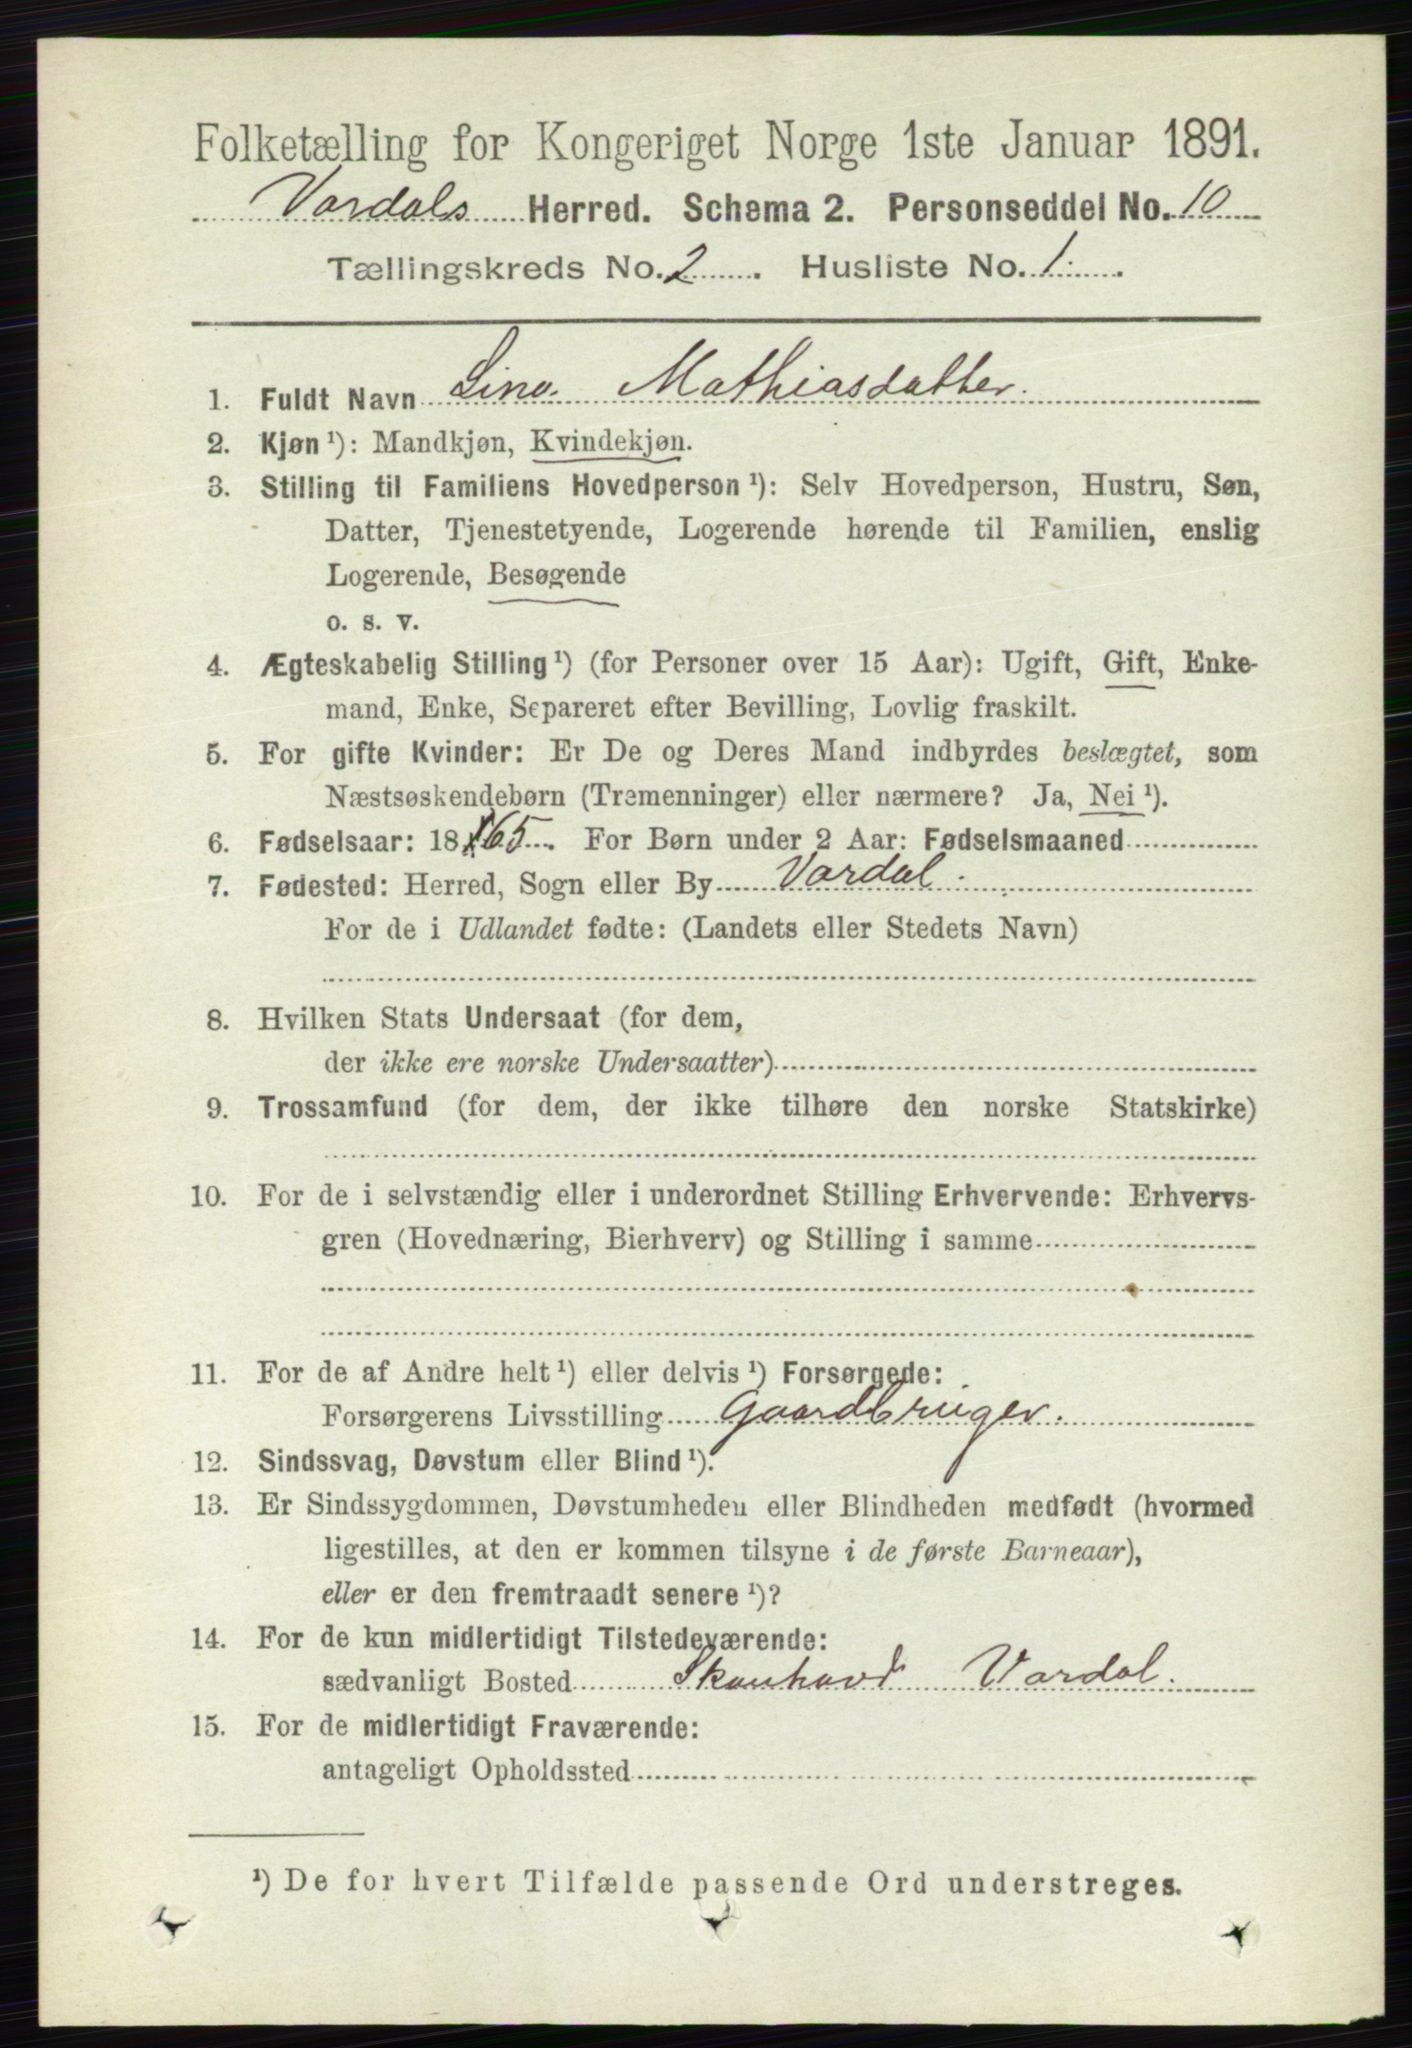 Folketælling for Kongeriget Norge 1ste Januar 1891.
Vardals Herred. Schema 2. Personseddel No. 10
Tællingskreds No. 2. Husliste No. 1.
1. Fuldt Navn Lina Mathiasdatter.
2. Kjøn ¹): Mandkjøn, Kvindekjøn.
3. Stilling til Familiens Hovedperson ¹): Selv Hovedperson, Hustru, Søn,
Datter, Tjenestetyende, Logerende hørende til Familien, enslig
Logerende, Besøgende
o. s. v.
4. Ægteskabelig Stilling ¹) (for Personer over 15 Aar): Ugift, Gift, Enke-
mand, Enke, Separeret efter Bevilling, Lovlig fraskilt.
5. For gifte Kvinder: Er De og Deres Mand indbyrdes beslægtet, som
Næstsøskendebørn (Tremenninger) eller nærmere? Ja, Nei ¹).
6. Fødselsaar: 1865. For Børn under 2 Aar: Fødselsmaaned
7. Fødested: Herred, Sogn eller By Vardal.
For de i Udlandet fødte: (Landets eller Stedets Navn)
8. Hvilken Stats Undersaat (for dem,
der ikke ere norske Undersaatter)
9. Trossamfund (for dem, der ikke tilhøre den norske Statskirke)
10. For de i selvstændig eller i underordnet Stilling Erhvervende: Erhvervs-
gren (Hovednæring, Bierhverv) og Stilling i samme
11. For de af Andre helt ¹) eller delvis ¹) Forsørgede:
Forsørgerens Livsstilling Gaardbruger.
12. Sindssvag, Døvstum eller Blind ¹).
13. Er Sindssygdommen, Døvstumheden eller Blindheden medfødt (hvormed
ligestilles, at den er kommen tilsyne i de første Barneaar),
eller er den fremtraadt senere ¹)?
14. For de kun midlertidigt Tilstedeværende:
sædvanligt Bosted Vardal.
15. For de midlertidigt Fraværende:
antageligt Opholdssted
¹) De for hvert Tilfælde passende Ord understreges.